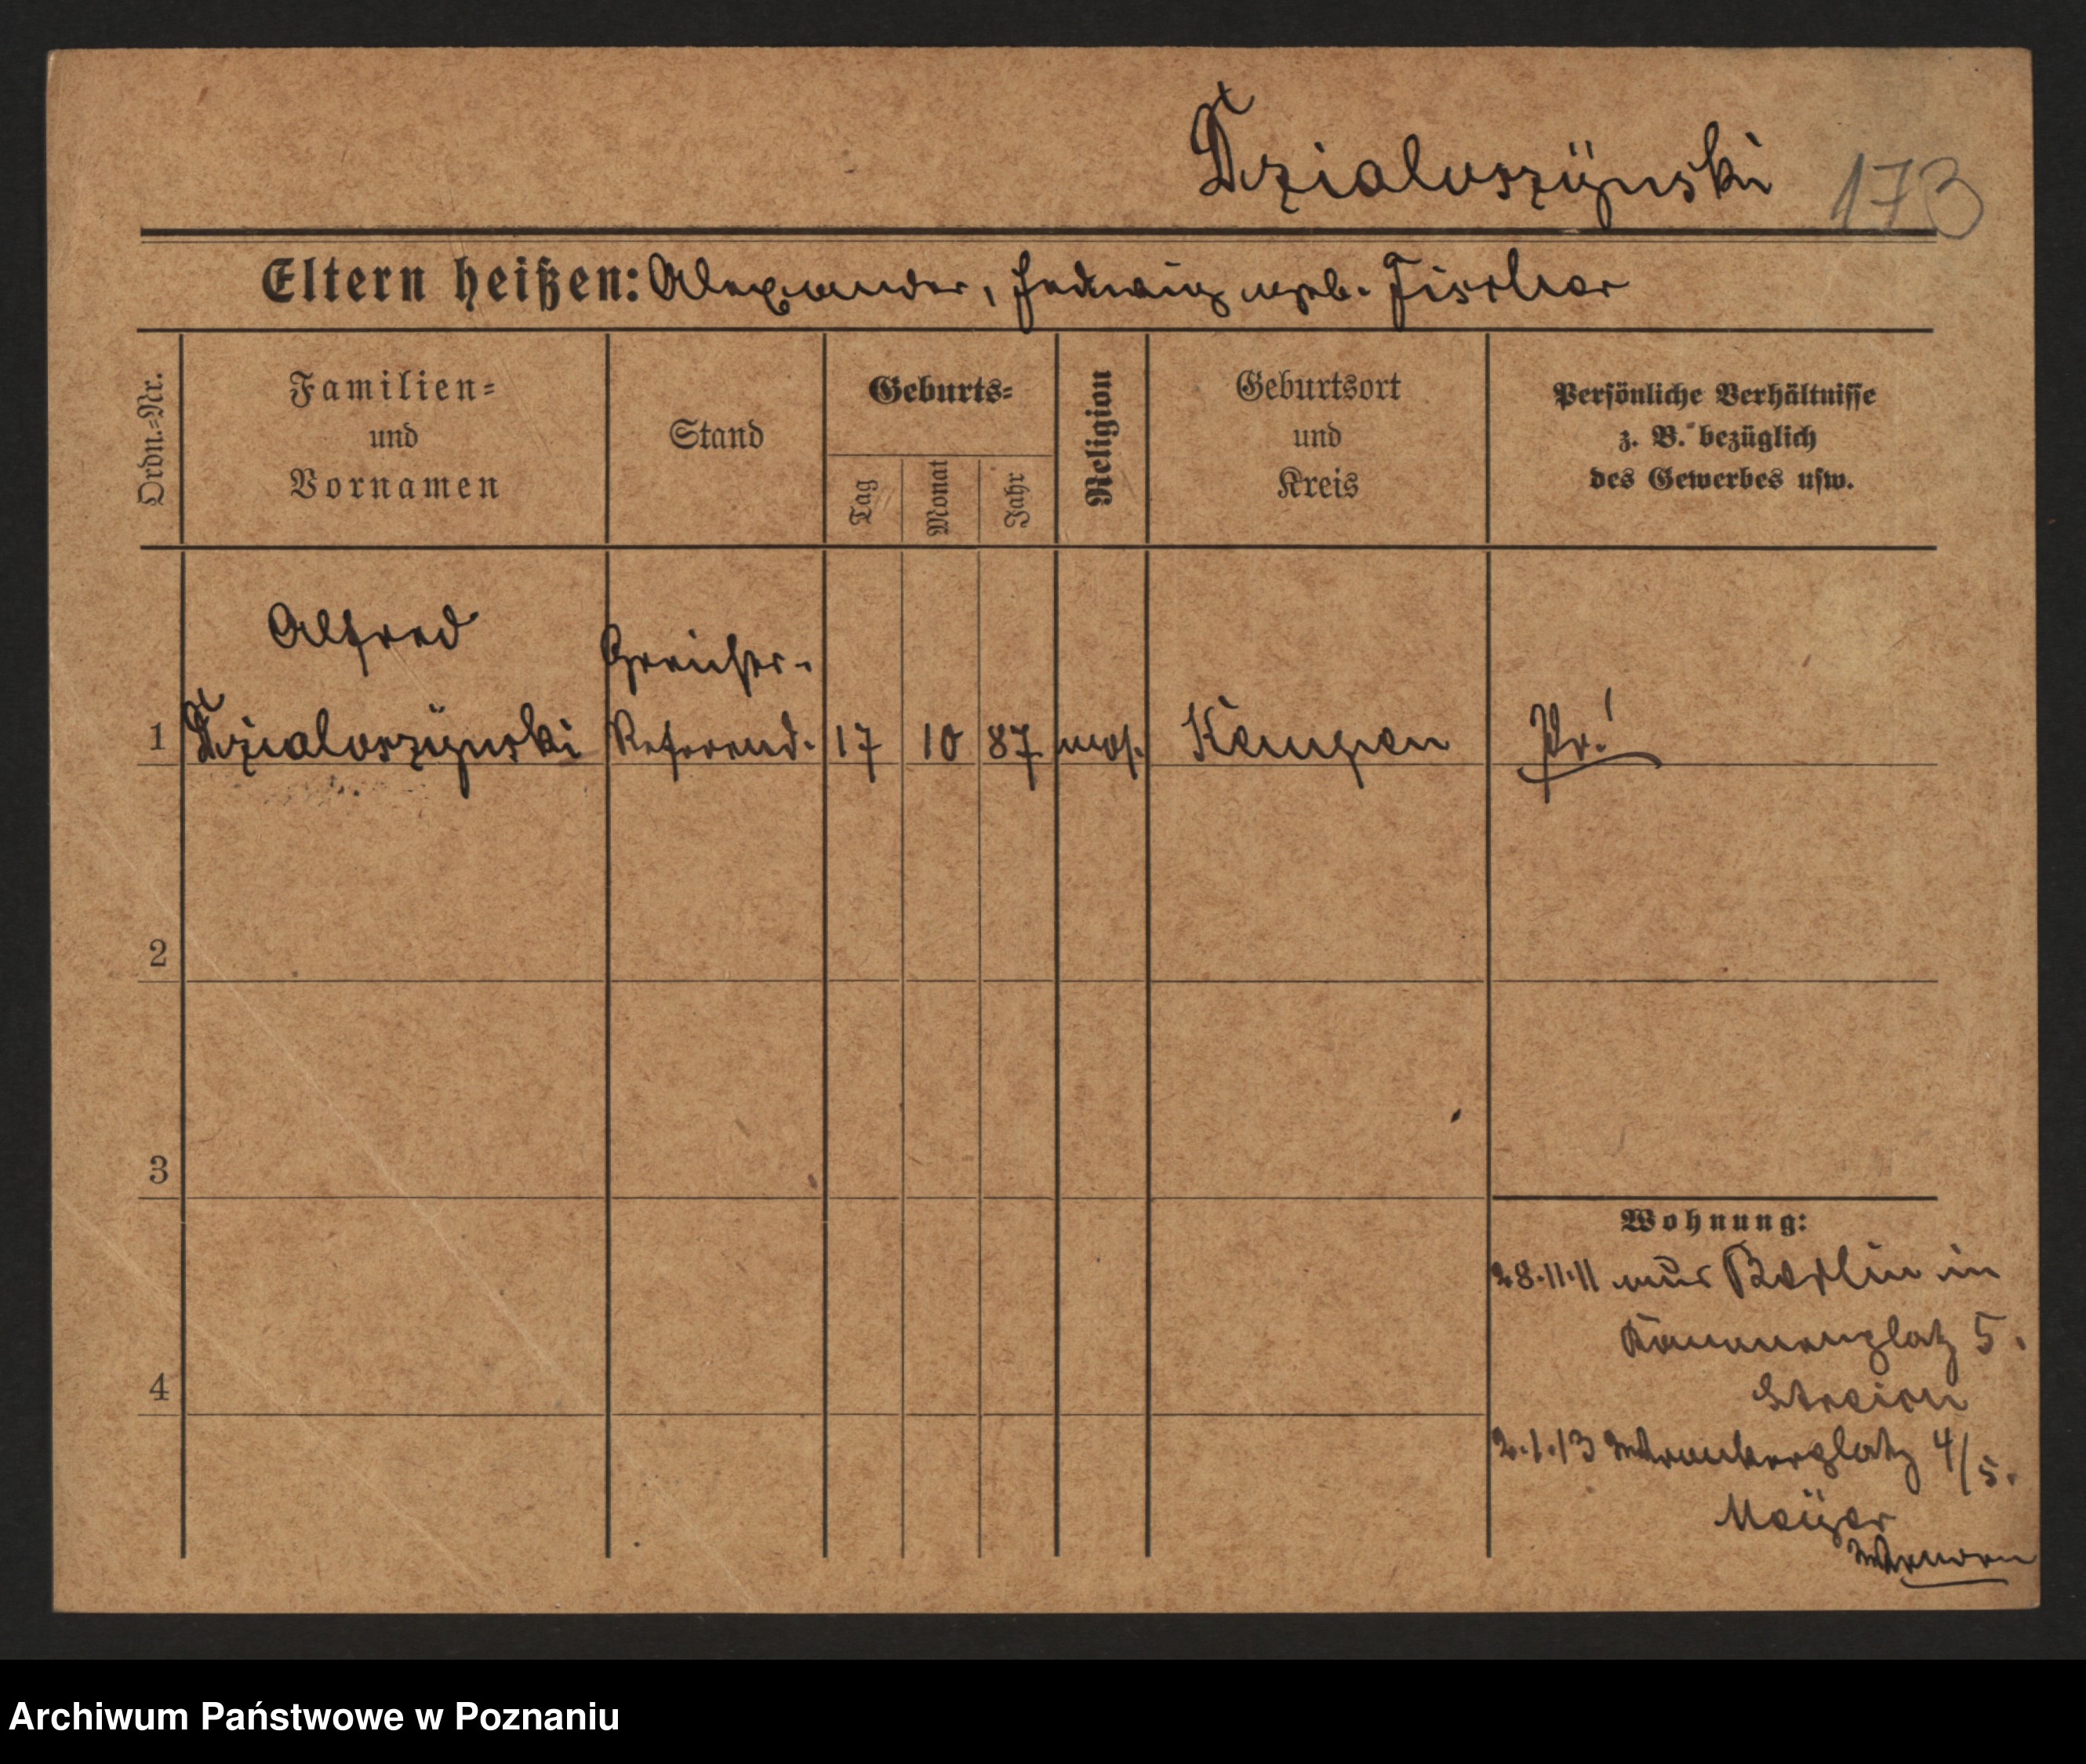 Dzialoszÿnski 173
Eltern heißen: Alexander, Hedwig geb. Fischer
Ordn.=Nr.
Familien=
und
Vornamen
Stand
Geburts=
Tag
Monat
Jahr
Religion
Geburtsort
und
Kreis
Persönliche Verhältnisse
z. B. bezüglich
des Gewerbes usw.
Alfred
1 Dzialoszÿnski Referend. 17 10 87 mos. Kempen Pr.!
2
3
4
Wohnung:
28.11.11 aus Berlin in
Kanonenplatz 5.
2.1.13 4/5.
Meÿer
Archiwum Państwowe w Poznaniu